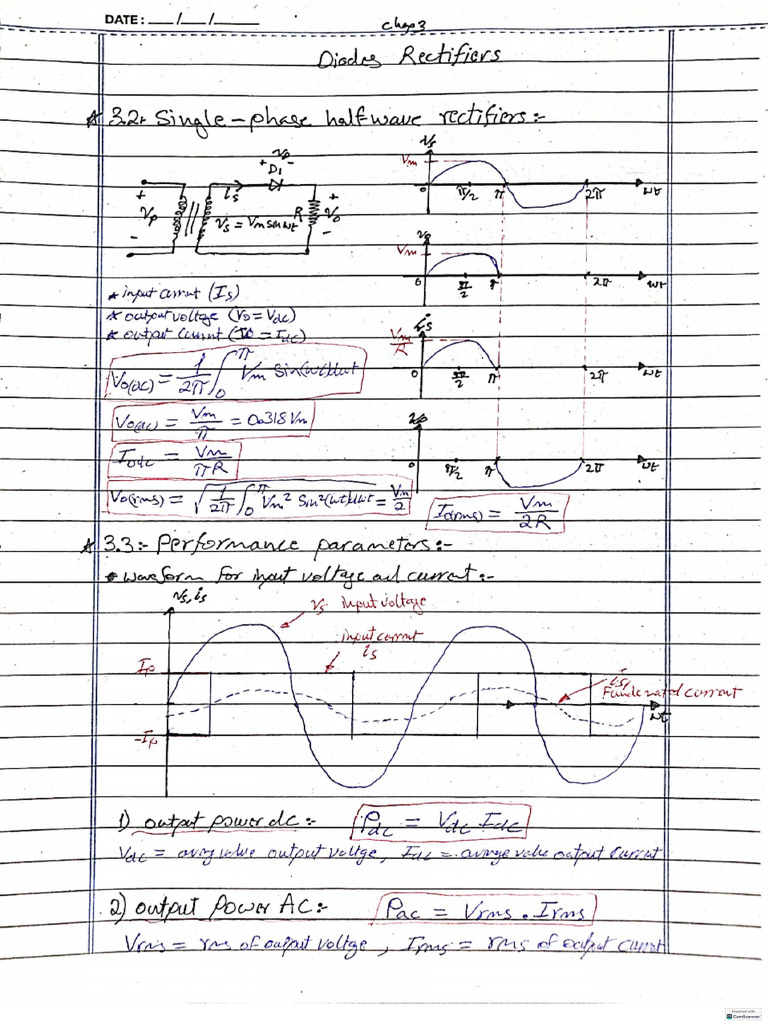 DATE: __/__/____
Chap3
Diodes Rectifiers
* 3.2:- Single-phase half wave rectifiers:-
+ VD -
D1
is
+ Vp -
Vs = Vm sin wt
R
+ Vo -
Vs
Vm
0 π/2 π 2π wt
Vo
Vm
0 π/2 π 2π wt
is
Vm/R
0 π/2 π 2π wt
VD
0 π/2 π 2π wt
* input current (Is)
* output voltage (Vo = Vdc)
* output current (Io = Idc)
Vo(dc) = 1/2π ∫0^π Vm Sin(wt) dwt
Vo(dc) = Vm/π = 0.318 Vm
Iodc = Vm/πR
Vo(rms) = √(1/2π ∫0^π Vm² Sin²(wt) dwt) = Vm/2
Io(rms) = Vm/2R
* 3.3:- Performance parameters:-
• waveform for input voltage and current:-
vs, is
vs input voltage
input current
is
Ip
is1
Fundamental current
wt
-Ip
1) output power dc:- Pdc = Vdc Idc
Vdc = average value output voltage, Idc = average value output current
2) output power AC:- Pac = Vrms . Irms
Vrms = rms of output voltage, Irms = rms of output current
Scanned with
CamScanner